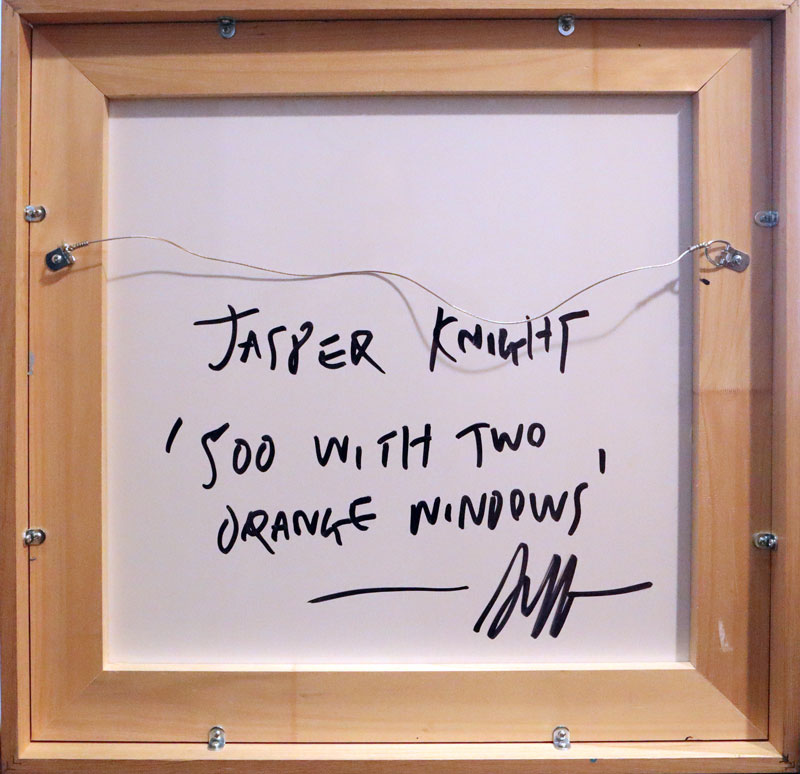 JASPER KNIGHT
'500 WITH TWO
ORANGE WINDOWS'